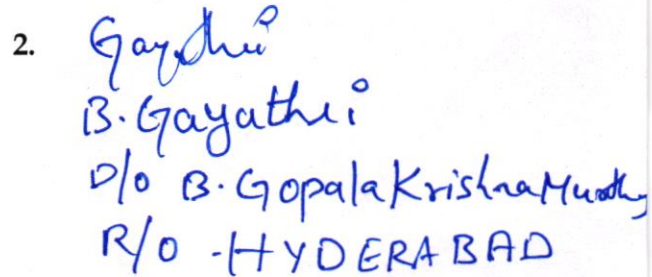 2. Gayathri
B. Gayathri
D/o B. Gopala Krishna Murthy
R/o - HYDERABAD